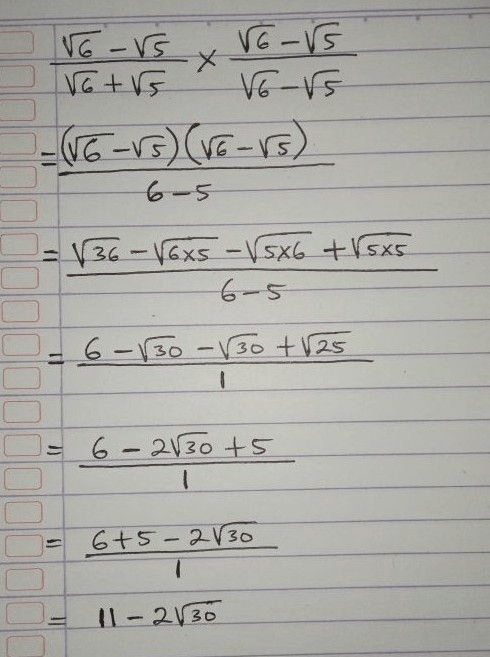 (√6 - √5)/(√6 + √5) × (√6 - √5)/(√6 - √5)
= (√6 - √5)(√6 - √5)/(6 - 5)
= (√36 - √6×5 - √5×6 + √5×5)/(6 - 5)
= (6 - √30 - √30 + √25)/1
= (6 - 2√30 + 5)/1
= (6 + 5 - 2√30)/1
= 11 - 2√30